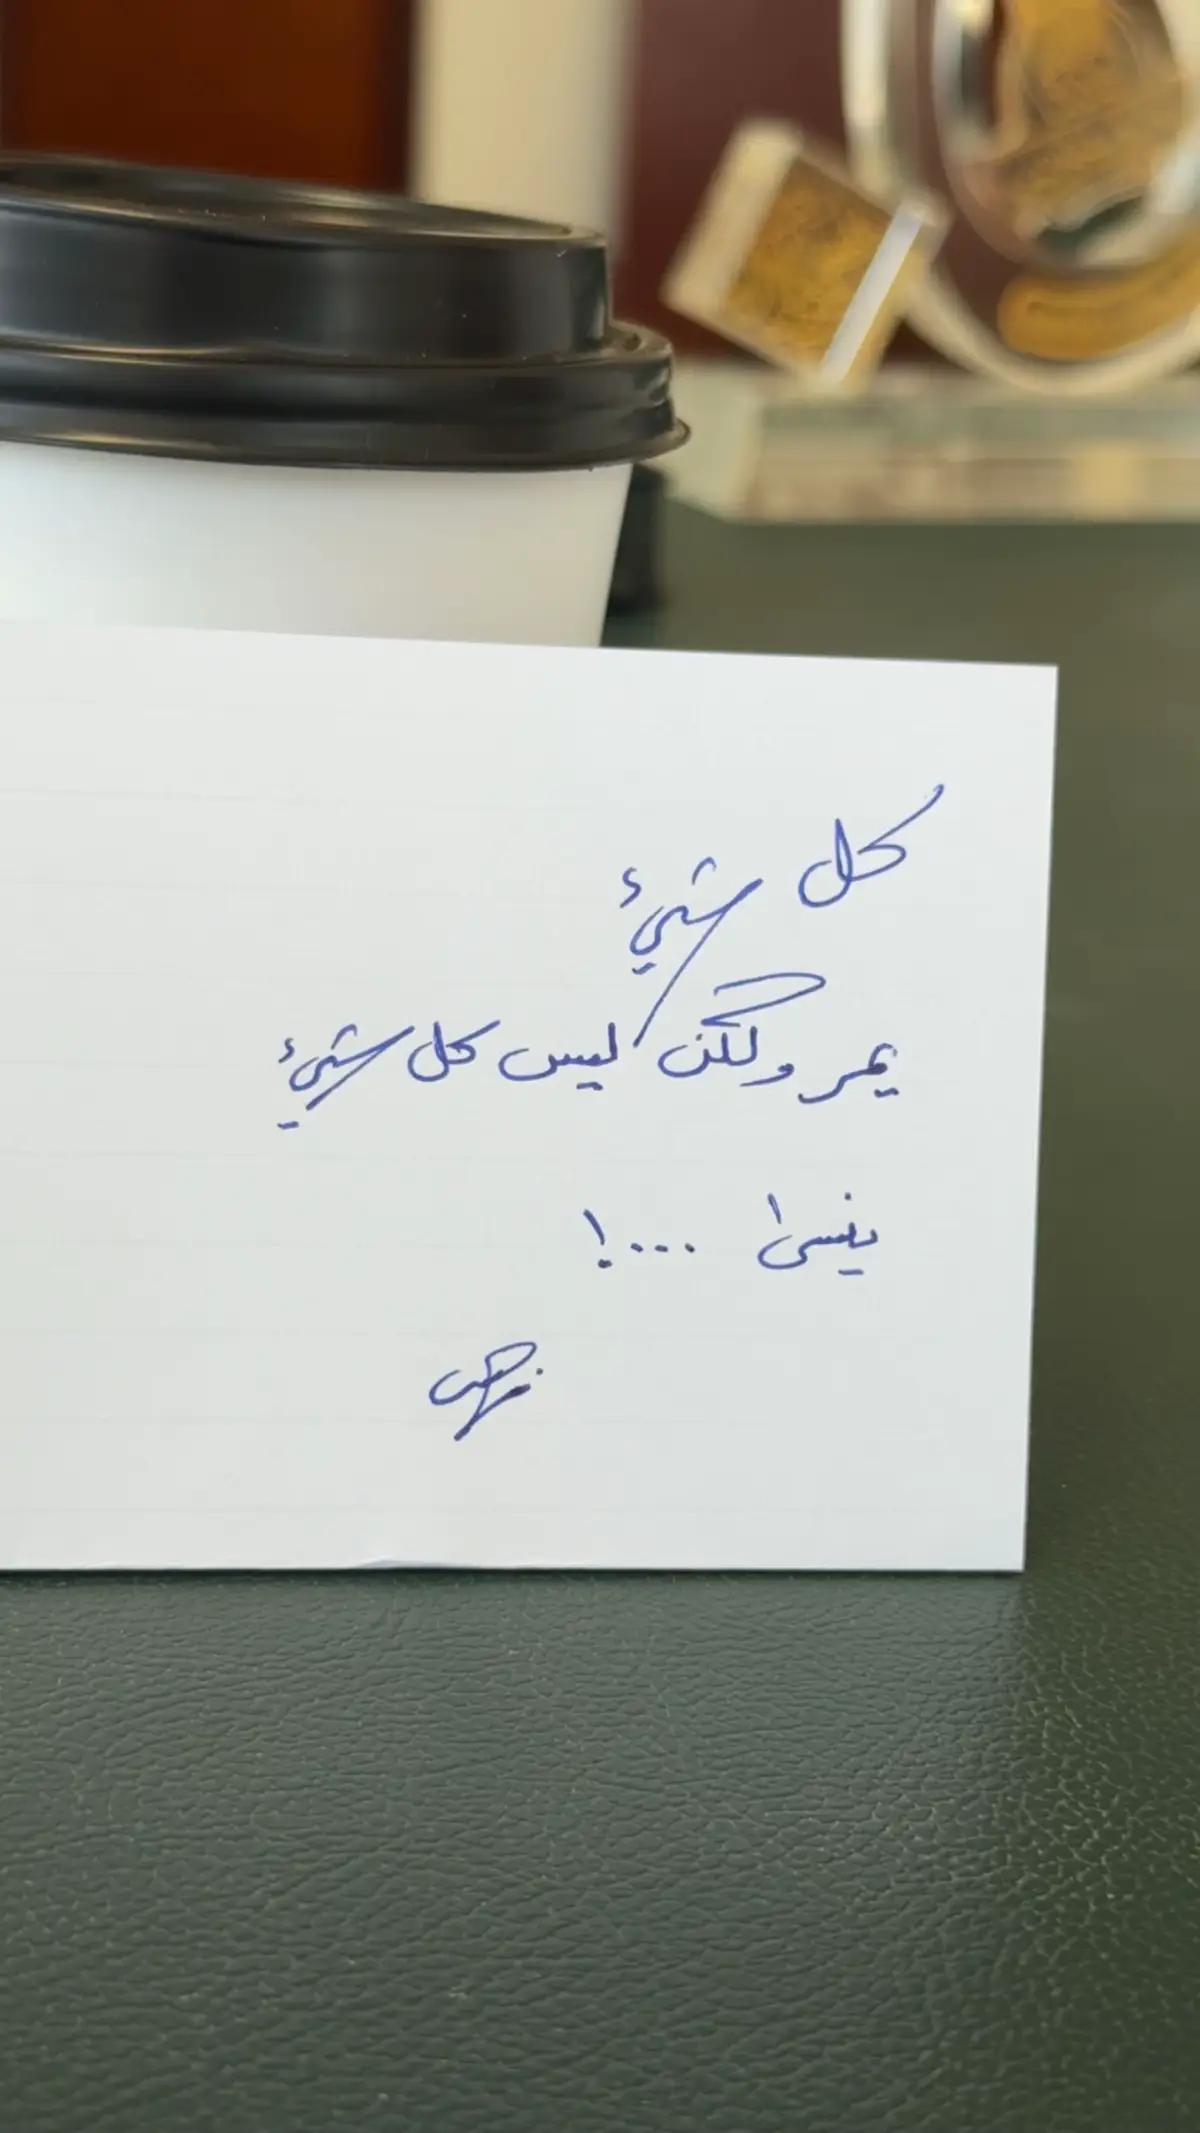 كل شيئ
يمر ولكن ليس كل شيئ
ينسى ...!